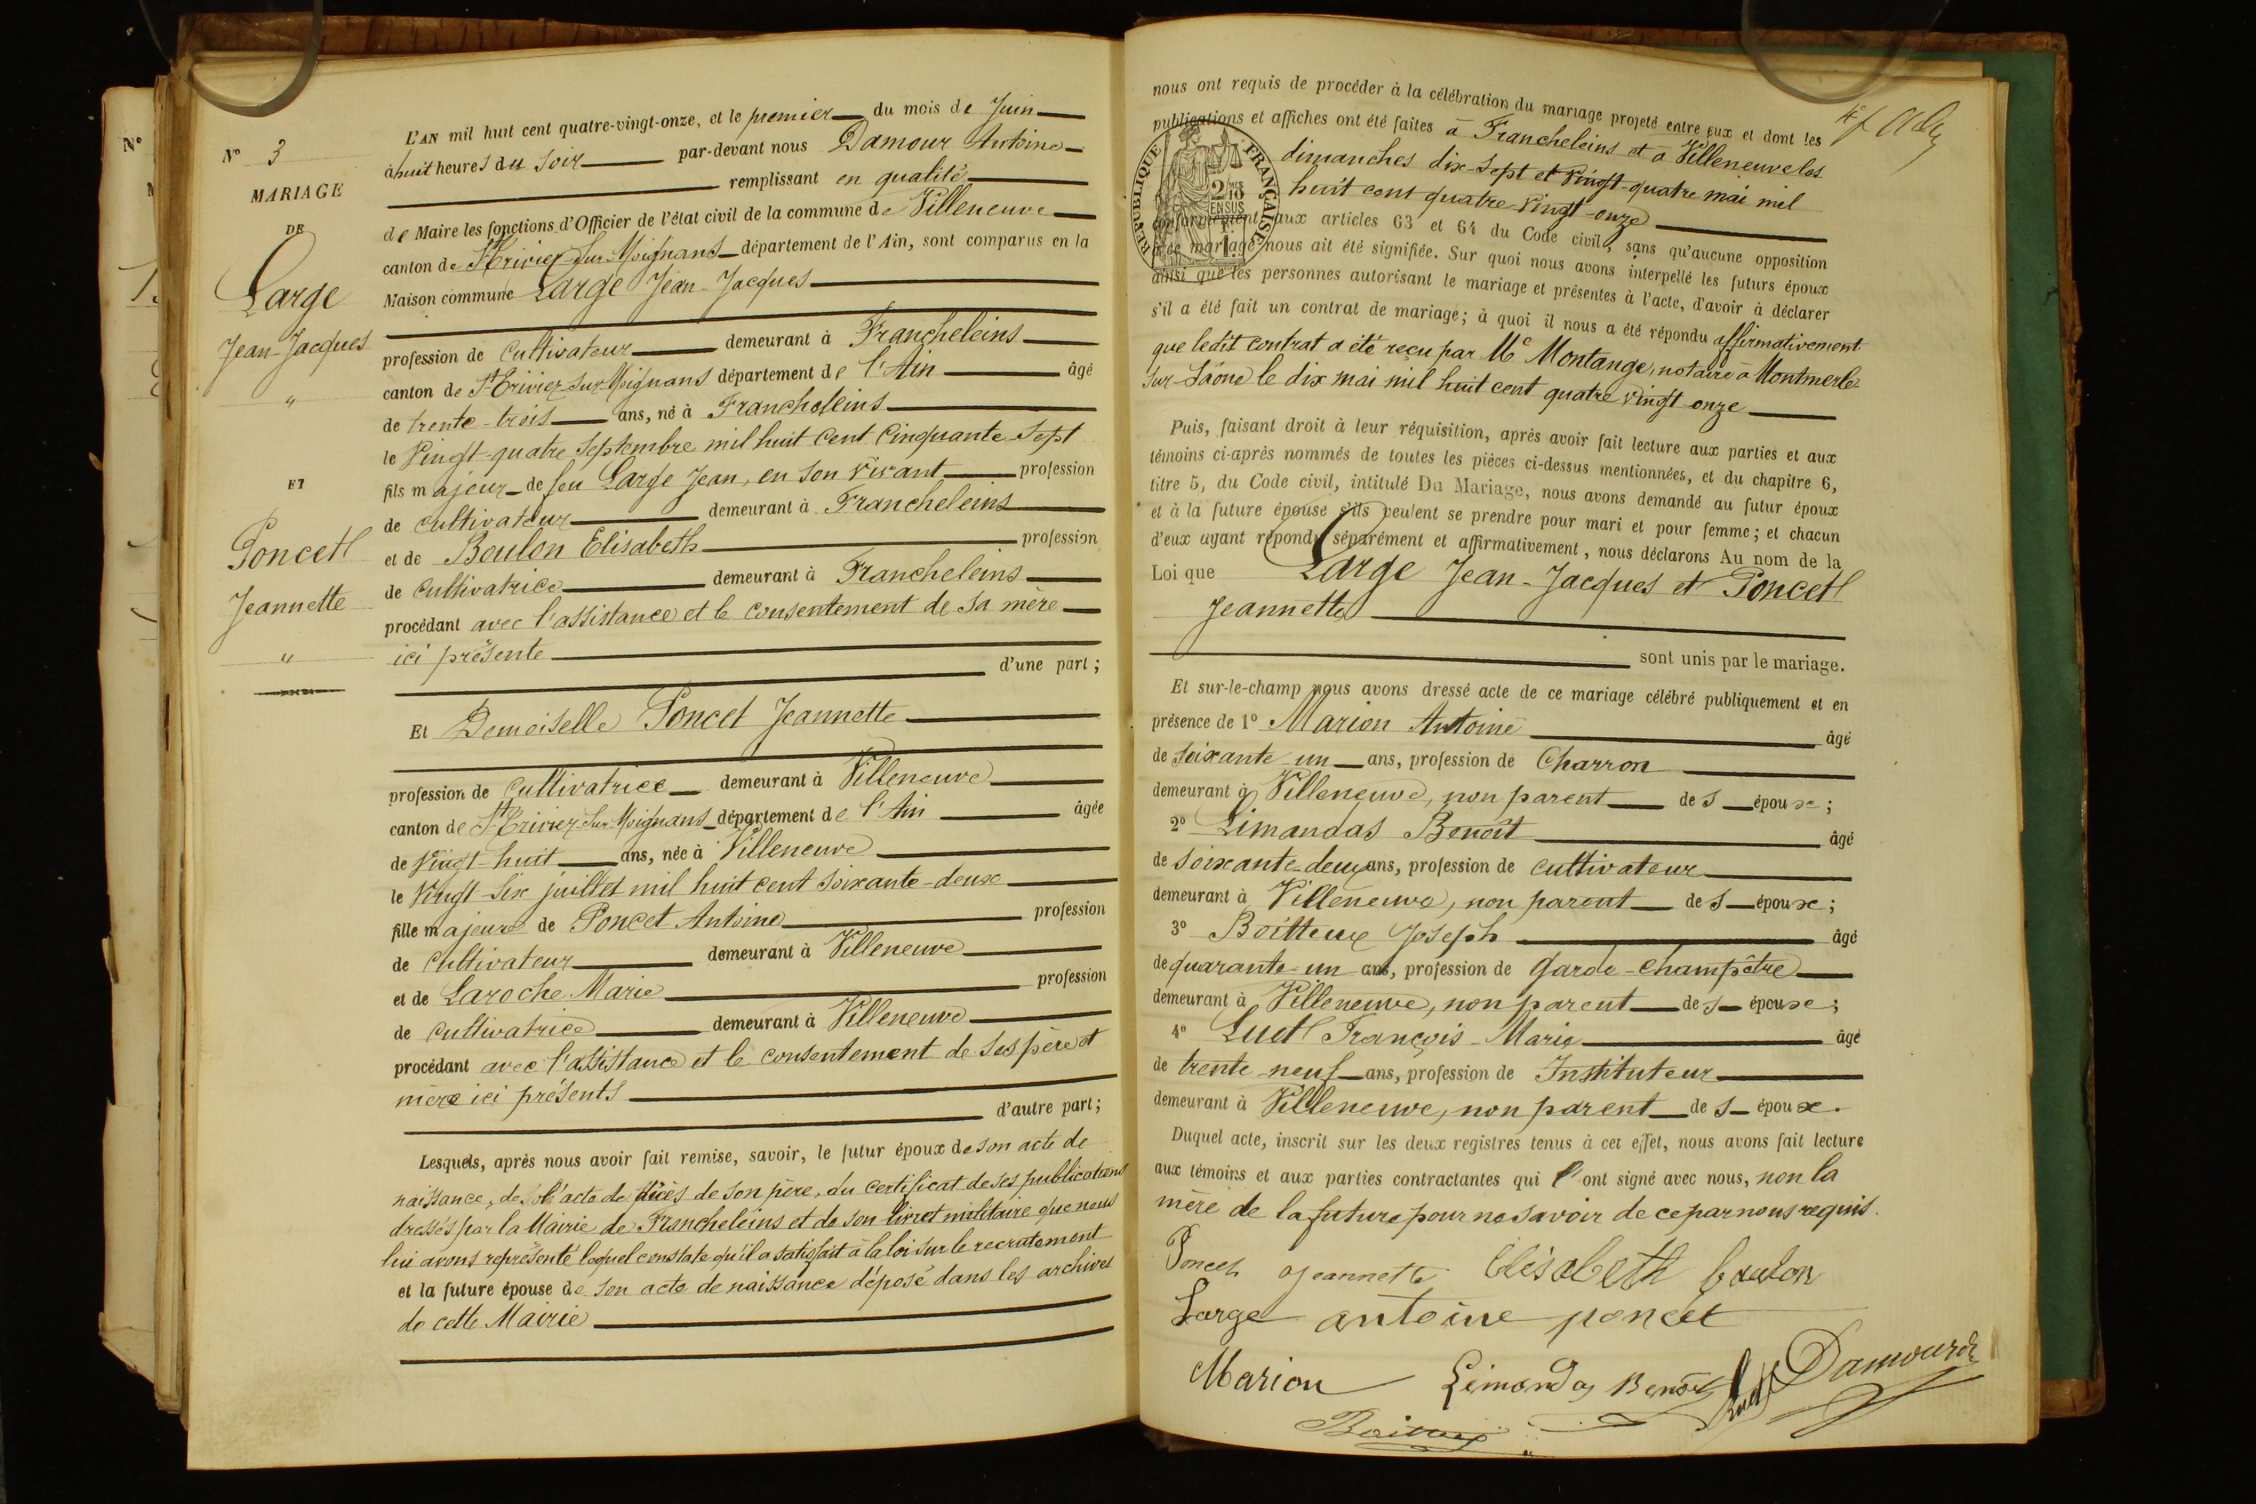 N° 3
MARIAGE
DE
Large
Jean-Jacques
"
ET
Poncet
Jeannette
"
L'AN mil huit cent quatre-vingt-onze, et le premier du mois de Juin
à huit heures du soir par-devant nous Damour Antoine
remplissant en qualité
de Maire les fonctions d'Officier de l'état civil de la commune de Villeneuve
canton de St Trivier-sur-Moignans département de l'Ain, sont comparus en la
Maison commune Large Jean-Jacques
profession de Cultivateur demeurant à Francheleins
canton de St Trivier-sur-Moignans département de l'Ain âgé
de trente-trois ans, né à Francheleins
le Vingt-quatre Septembre mil huit cent Cinquante Sept
fils majeur de feu Large Jean, en son vivant profession
de cultivateur demeurant à Francheleins
et de Boulon Elisabeth profession
de cultivatrice demeurant à Francheleins
procédant avec l'assistance et le consentement de sa mère
ici présente
d'une part;
Et Demoiselle Poncet Jeannette
profession de Cultivatrice demeurant à Villeneuve
canton de St Trivier-sur-Moignans département de l'Ain âgée
de Vingt-huit ans, née à Villeneuve
le Vingt-six juillet mil huit cent soixante-deux
fille majeure de Poncet Antoine profession
de Cultivateur demeurant à Villeneuve
et de Laroche Marie profession
de cultivatrice demeurant à Villeneuve
procédant avec l'assistance et le consentement de ses père et
mère ici présents
d'autre part;
Lesquels, après nous avoir fait remise, savoir, le futur époux de son acte de
naissance, de l'acte de décès de son père, du certificat de ses publications
dressés par la Mairie de Francheleins et de son livret militaire que nous
lui avons représenté lequel constate qu'il a satisfait à la loi sur le recrutement
et la future épouse de son acte de naissance déposé dans les archives
de cette Mairie
nous ont requis de procéder à la célébration du mariage projeté entre eux et dont les
publications et affiches ont été faites à Francheleins et à Villeneuve les
dimanches dix-sept et Vingt-quatre mai mil
huit cent quatre-vingt-onze
conformément aux articles 63 et 64 du Code civil, sans qu'aucune opposition
à ce mariage nous ait été signifiée. Sur quoi nous avons interpellé les futurs époux
ainsi que les personnes autorisant le mariage et présentes à l'acte, d'avoir à déclarer
s'il a été fait un contrat de mariage; à quoi il nous a été répondu affirmativement
que ledit contrat a été reçu par Me Montange, notaire à Montmerle
sur-Saône le dix mai mil huit cent quatre vingt-onze
RÉPUBLIQUE FRANÇAISE
2/10
EN SUS
Puis, faisant droit à leur réquisition, après avoir fait lecture aux parties et aux
témoins ci-après nommés de toutes les pièces ci-dessus mentionnées, et du chapitre 6,
titre 5, du Code civil, intitulé Du Mariage, nous avons demandé au futur époux
et à la future épouse s'ils veulent se prendre pour mari et pour femme; et chacun
d'eux ayant répondu séparément et affirmativement, nous déclarons Au nom de la
Loi que Large Jean-Jacques et Poncet
Jeannette
sont unis par le mariage.
Et sur-le-champ nous avons dressé acte de ce mariage célébré publiquement et en
présence de 1° Marion Antoine âgé
de soixante-un ans, profession de Charron
demeurant à Villeneuve, non parent des époux;
2° Limandas Benoît âgé
de soixante-deux ans, profession de cultivateur
demeurant à Villeneuve, non parent des époux;
3° Boitteux Joseph âgé
de quarante-un ans, profession de Garde-champêtre
demeurant à Villeneuve, non parent des époux;
4° Luet François-Marie âgé
de trente-neuf ans, profession de Instituteur
demeurant à Villeneuve, non parent des époux.
Duquel acte, inscrit sur les deux registres tenus à cet effet, nous avons fait lecture
aux témoins et aux parties contractantes qui l'ont signé avec nous, non la
mère de la future pour ne savoir de ce par nous requis.
Poncet Jeannette Elisabeth boulon
Large antoine poncet
Marion Limandas Benoît Luet Damour
Boitteux